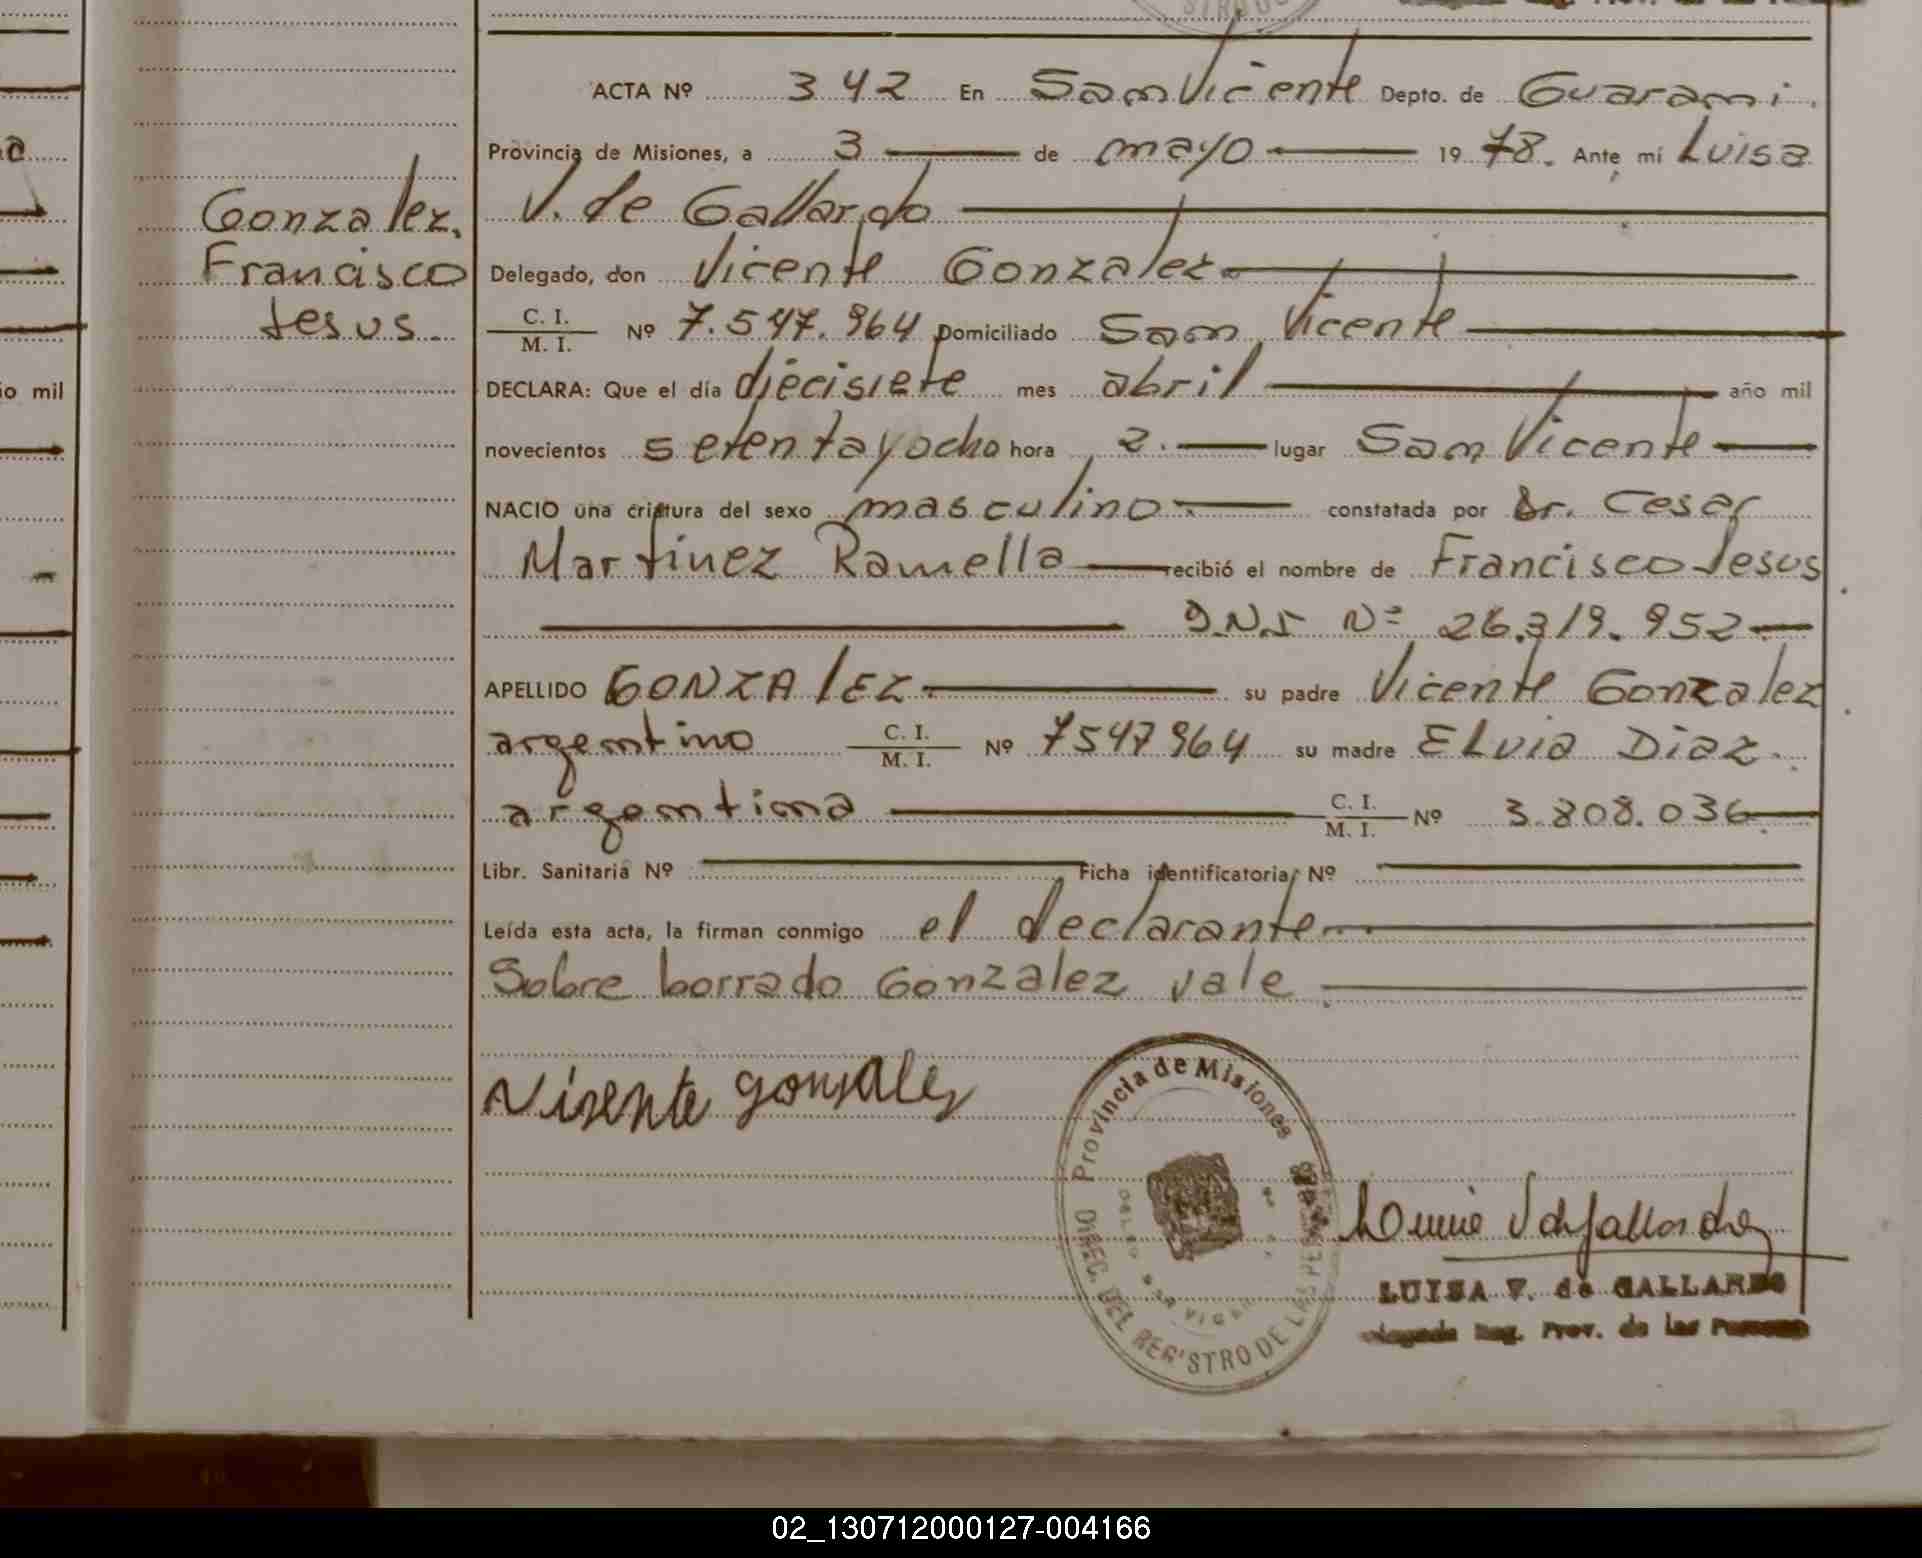 ACTA Nº 342 En San Vicente Depto. de Guarani.
Provincia de Misiones, a 3 de mayo 1978. Ante mí Luisa
V. de Gallardo
Gonzalez.
Francisco
Jesus
Delegado, don Vicente Gonzalez
C. I.
M. I. Nº 7.547.964 Domiciliado San Vicente
DECLARA: Que el día diecisiete mes abril año mil
novecientos setentayocho hora 2. lugar San Vicente
NACIO una criatura del sexo masculino constatada por Dr. Cesar
Martinez Ramella recibió el nombre de Francisco Jesus
D.N.I Nº 26.319.952
APELLIDO GONZALEZ su padre Vicente Gonzalez
argentino C. I.
M. I. Nº 7547964 su madre ELvia Diaz.
argentina C. I.
M. I. Nº 3.808.036
Libr. Sanitaria Nº Ficha identificatoria Nº
Leída esta acta, la firman conmigo el declarante
Sobre borrado Gonzalez vale
Visente gonsales
Provincia de Misiones
DIREC. DEL REGISTRO DE LAS PERSONAS
LUISA V. de GALLARDO
Reg. Prov. de las Personas
io mil
02_130712000127-004166